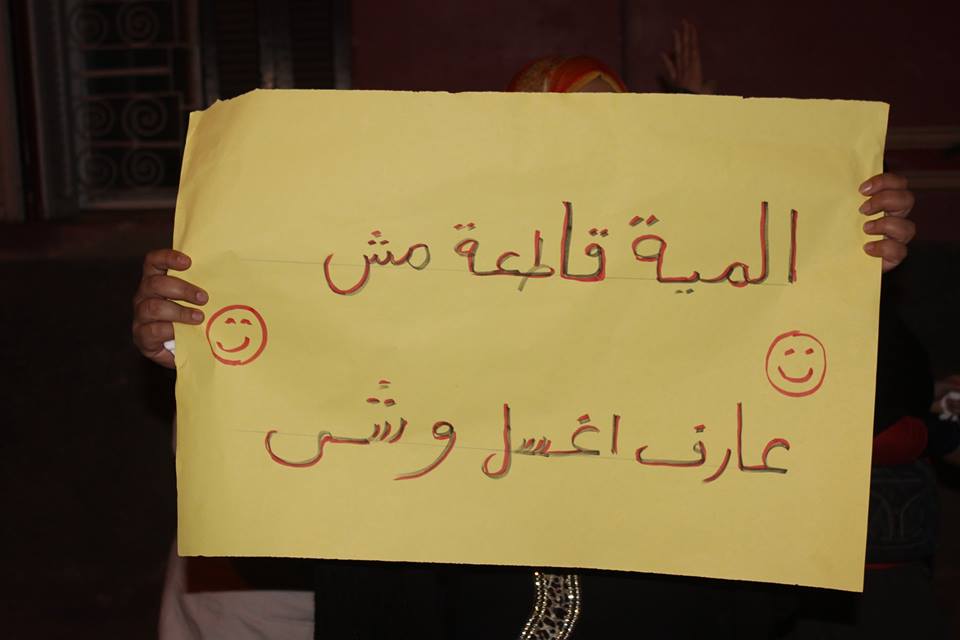 المية قاطعة مش
عارف اغسل وشى